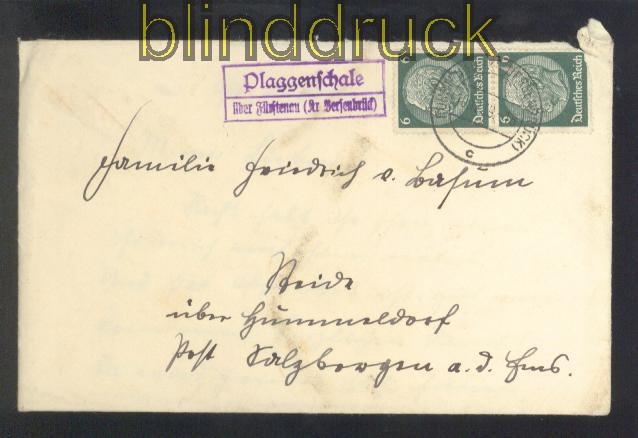 blinddruck
Plaggenschale
über Fürstenau (Kr Bersenbrück)
6 Deutsches Reich
6 Deutsches Reich
Familie Friedrich v.
Steide
über Hummeldorf
Post Salzbergen a. d. Ems.